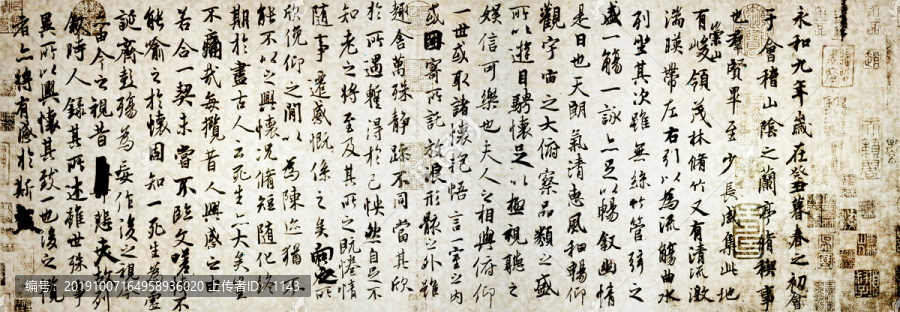 永和九年歲在癸丑暮春之初會
于會稽山陰之蘭亭脩禊事
也羣賢畢至少長咸集此地
有崇山峻領茂林脩竹又有清流激
湍暎帶左右引以為流觴曲水
列坐其次雖無絲竹管弦之
盛一觴一詠亦足以暢敘幽情
是日也天朗氣清惠風和暢仰
觀宇宙之大俯察品類之盛
所以遊目騁懷足以極視聽之
娛信可樂也夫人之相與俯仰
一世或取諸懷抱悟言一室之內
或因寄所託放浪形骸之外雖
趣舍萬殊靜躁不同當其欣
於所遇蹔得於己怏然自足不
知老之將至及其所之既惓情
隨事遷感慨係之矣向之所
欣俛仰之閒以為陳迹猶
能不以之興懷況脩短隨化終
期於盡古人云死生亦大矣豈
不痛哉每攬昔人興感之
若合一契未嘗不臨文嗟
能喻之於懷固知一死生為虛
誕齊彭殤為妄作後之視
由今之視昔悲夫故列
敘時人錄其所述雖世殊事
異所以興懷其致一也後之
者亦將有感於斯文
20191007164958936020 上传者ID：1143